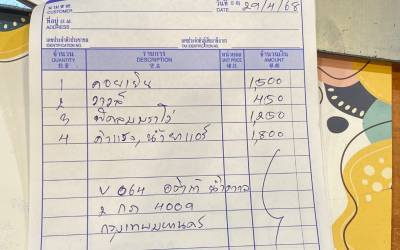 นามลูกค้า
CUSTOMER
วันที่
DATE 29/4/68
ที่อยู่
ADDRESS
เลขประจำตัวประชาชน
IDENTIFICATION NO.
เลขประจำตัวผู้เสียภาษีอากร
TAX IDENTIFICATION NO.
จำนวน รายการ หน่วยละ จำนวนเงิน
QUANTITY DESCRIPTION UNIT PRICE AMOUNT
1 คอยเย็น 1,500
2 วาวล์ 450
3 1,250
4 ค่าแรง, น้ำยาแอร์ 1,800
V 064
2 กภ 4009
กรุงเทพมหานคร